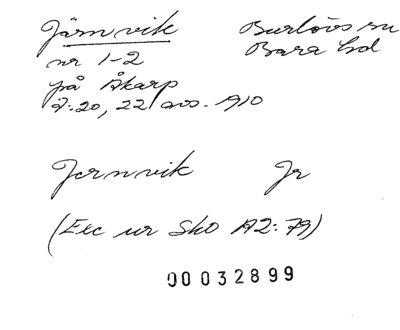 Järnvik Burlövs sn
nr 1-2 Bara hd
på Åkarp
7:20, 22 avs. 1910
Jernvik Jr
(Exc ur Sko A2:79)
00032899